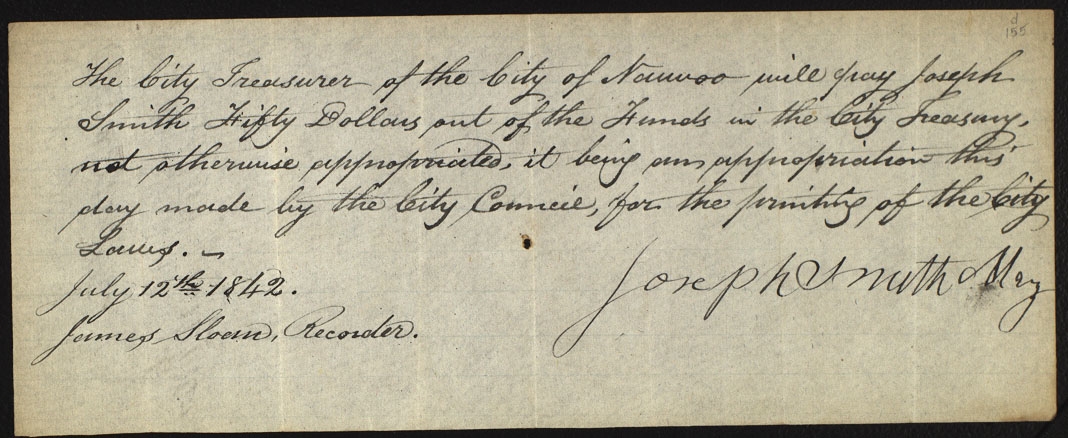 d
155
The City Treasurer of the City of Nauvoo will pay Joseph
Smith Fifty Dollars out of the Funds in the City Treasury,
not otherwise appropriated, it being an appropriation this
day made by the City Council, for the printing of the City
Laws.
July 12th 1842.
Joseph Smith May
James Sloan, Recorder.